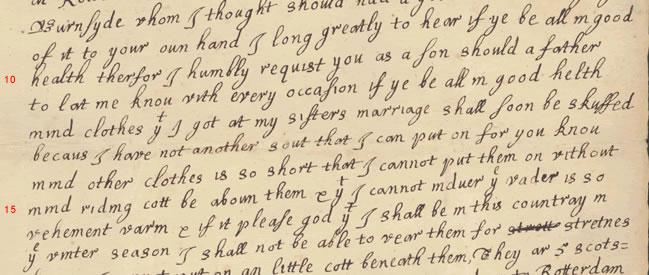 Burnsyde vhom I thought should
of it to your oun hand I long greatly to hear if ye be all in good
10 health therfor I humbly requist you as a son should a father
to lat me knou vith every occasion if ye be all in good helth
mind clothes yt I got at my sisters marriage shall soon be skuffed
becaus I have not another sout that I can put on for you knou
mind other clothes is so short that I cannot put them on vithout
15 mind riding cott be aboun them & yt I cannot induer ye vader is so
vehement varm & if it please god yt I shall be in this countray in
ye vinter season I shall not be able to vear them for strett stretnes
put on an little cott beneath them, They ar 5 scots=
to Rotterdam